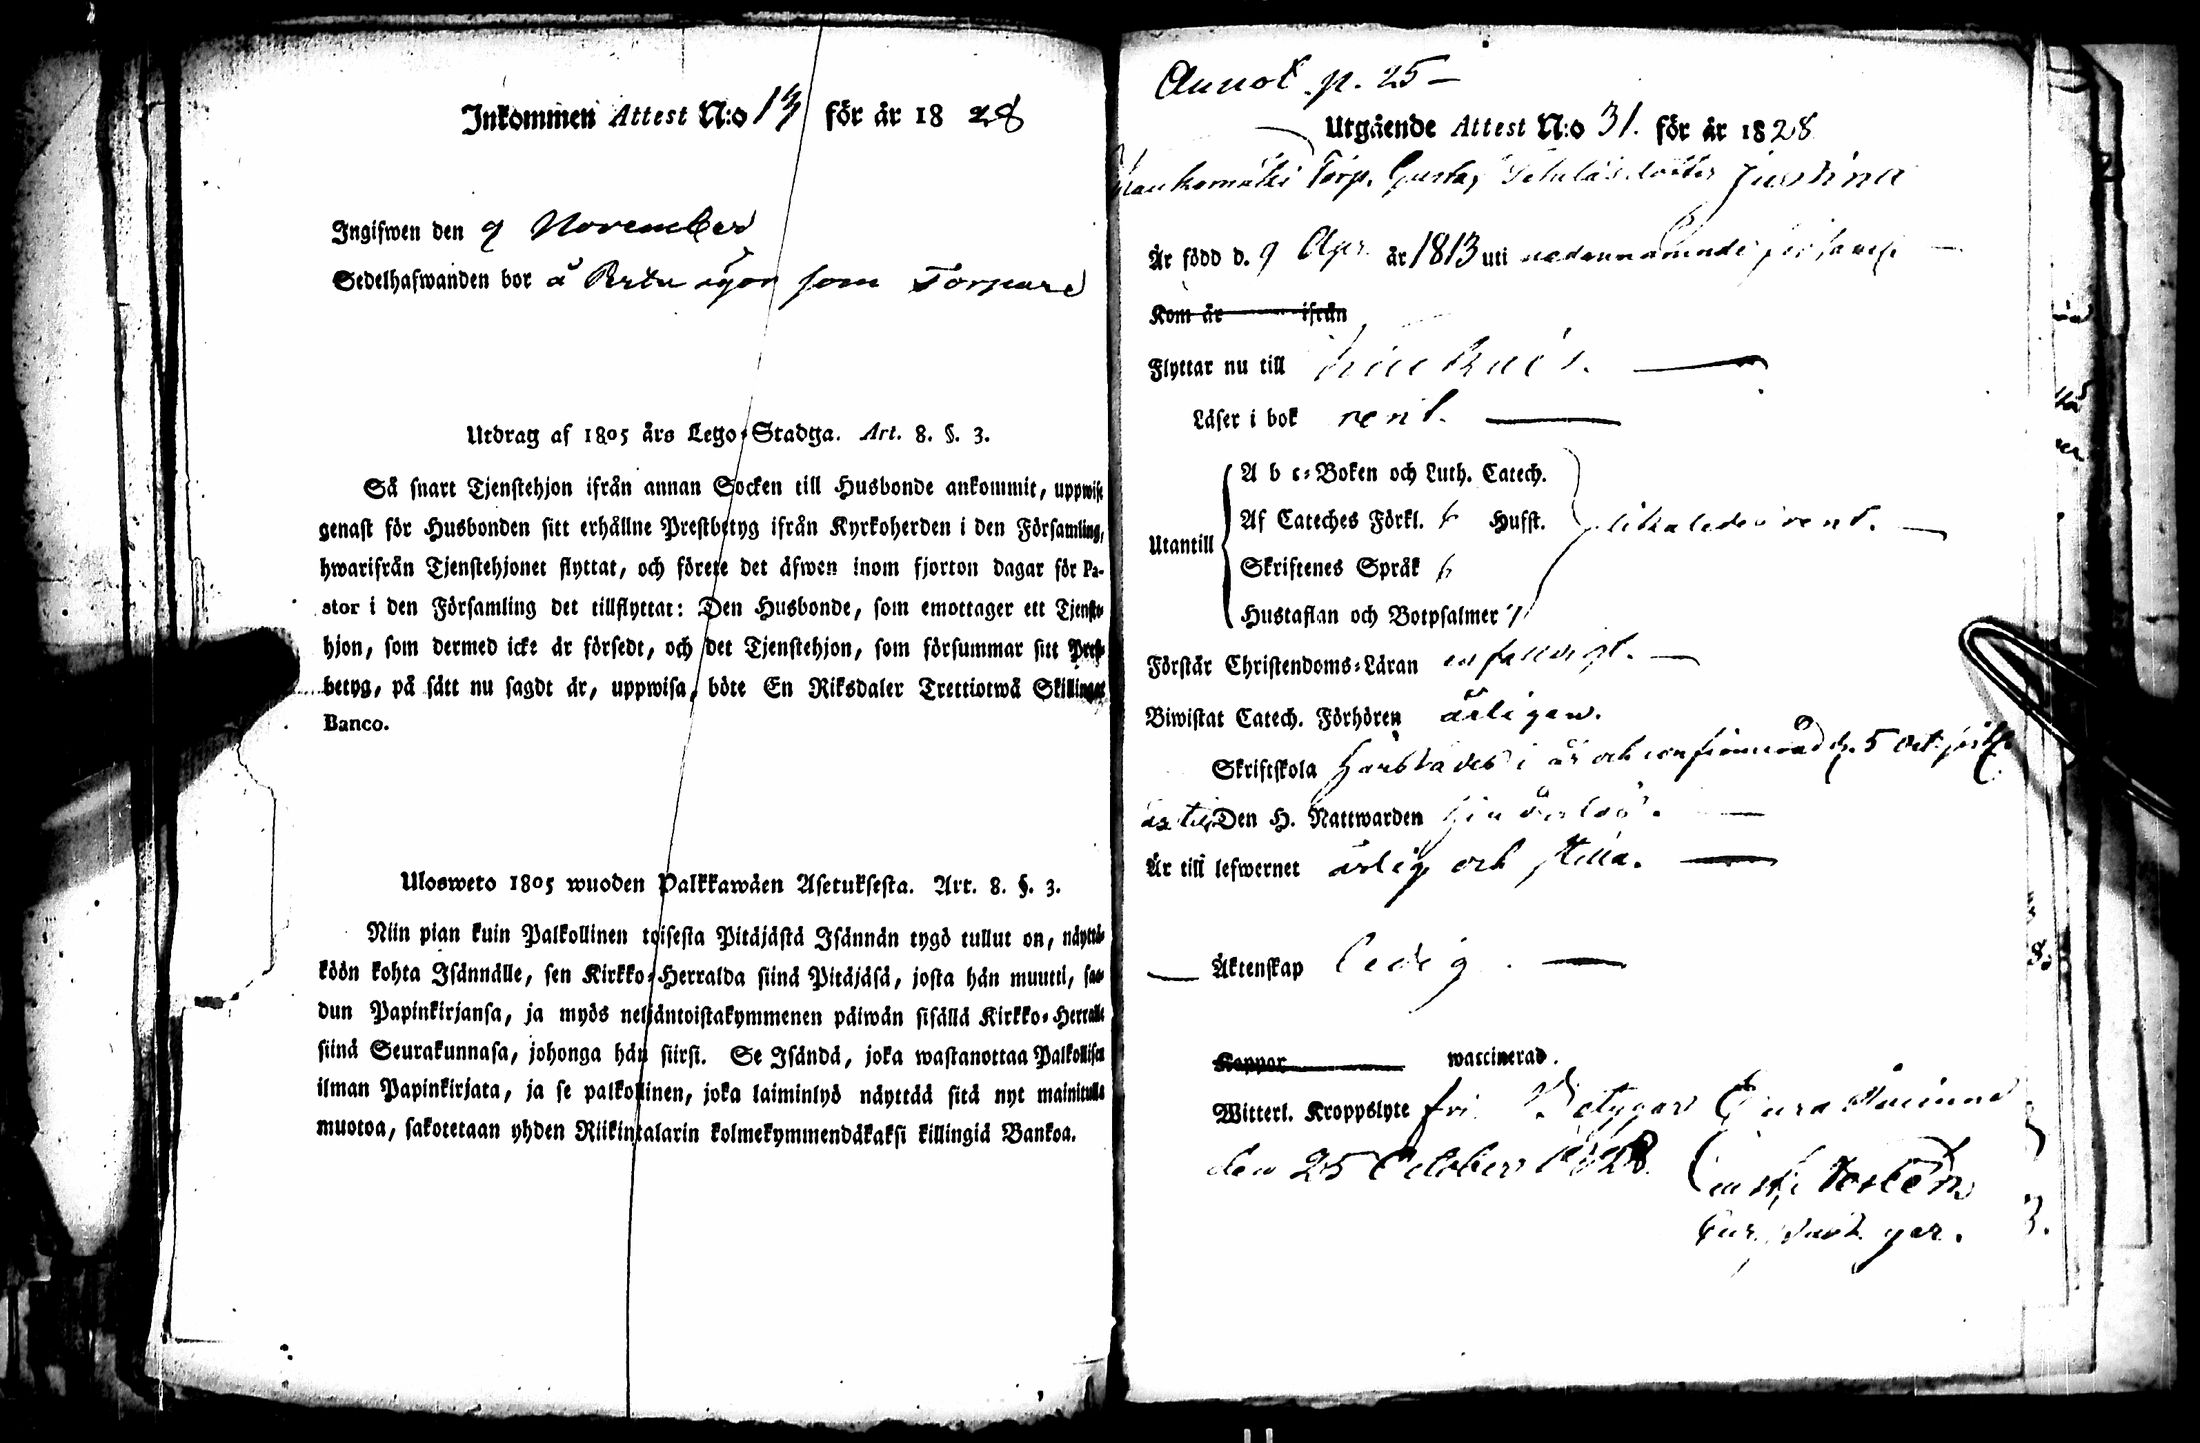 Inkommen Attest N:o 13 för år 1828
Ingifwen den 9 November
Sedelhafwanden bor å ägor som Torpare
Utdrag af 1805 års Lego-Stadga. Art. 8. §. 3.
Så snart Tjenstehjon ifrån annan Socken till Husbonde ankommit, uppwise
genast för Husbonden sitt erhållne Prestbetyg ifrån Kyrkoherden i den Församling,
hwarifrån Tjenstehjonet flyttat, och förete det äfwen inom fjorton dagar för Pa-
stor i den Församling det tillflyttat: Den Husbonde, som emottager ett Tjenste-
hjon, som dermed icke är försedt, och det Tjenstehjon, som försummar sitt Prest-
betyg, på sätt nu sagdt är, uppwisa, böte En Riksdaler Trettiotwå Skillingar
Banco.
Ulosweto 1805 wuoden Palkkawäen Asetuksesta. Art. 8. §. 3.
Niin pian kuin Palkollinen toisesta Pitäjästä Isännän tygö tullut on, näyttä-
köön kohta Isännälle, sen Kirkko-Herralda siinä Pitäjäsä, josta hän muutti, saa-
dun Papinkirjansa, ja myös neljäntoistakymmenen päiwän sisällä Kirkko-Herralle
siinä Seurakunnasa, johonga hän siirsi. Se Isändä, joka wastanottaa Palkollisen
ilman Papinkirjata, ja se palkollinen, joka laiminlyö näyttää sitä nyt mainitulla
muotoa, sakotetaan yhden Riikintalarin kolmekymmendäkaksi killingiä Bankoa.
Annot. p. 25 –
Utgående Attest N:o 31. för år 1828
Torp. Gustaf dotter Justina
Är född d. 9 Apr. år 1813 uti nedannämnde församl. –
Kom år ifrån
Flyttar nu till
Läser i bok rent. –
Utantill
A b c-Boken och Luth. Catech.
Af Cateches Förkl. Husst.
Skriftenes Språk
Hustaflan och Botpsalmer
likaledes rent. –
Förstår Christendoms-Läran enfaldigt. –
Biwistat Catech. Förhören årligen.
Skriftskola i år och confirmerad d. 5 Oct.
Den H. Nattwarden
Är till lefwernet ärlig och stilla. –
– Äktenskap ledig. –
Koppor waccinerad.
Witterl. Kroppslyte fri. Betygar Eura
den 25 October 1828.